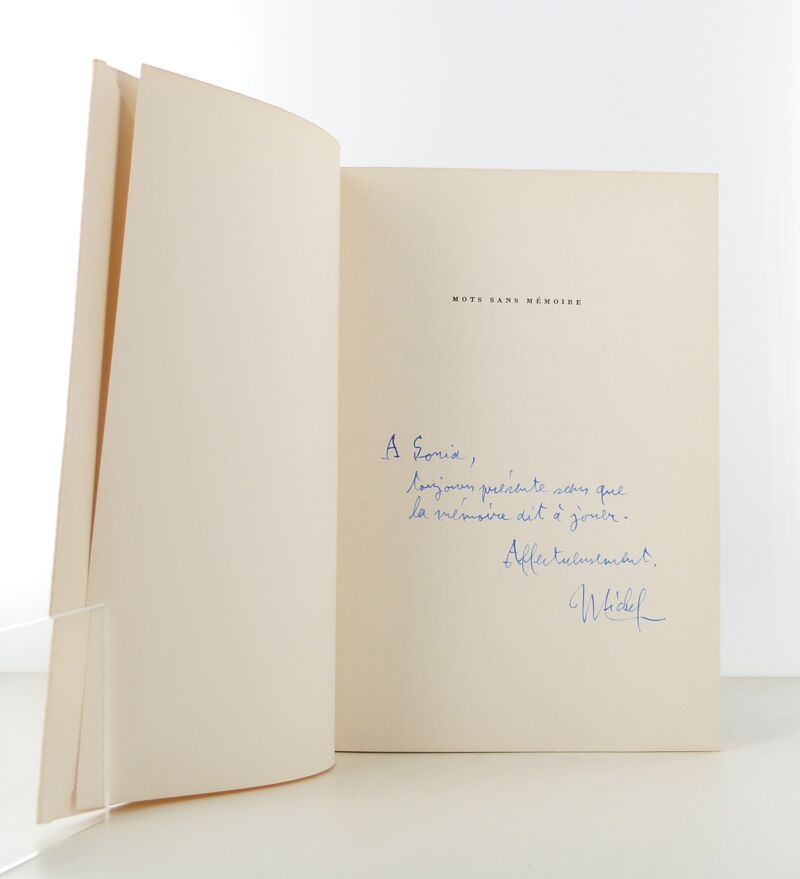 MOTS SANS MÉMOIRE
A Sonia,
toujours présente sans que
la mémoire ait à jouer.
Affectueusement.
Michel